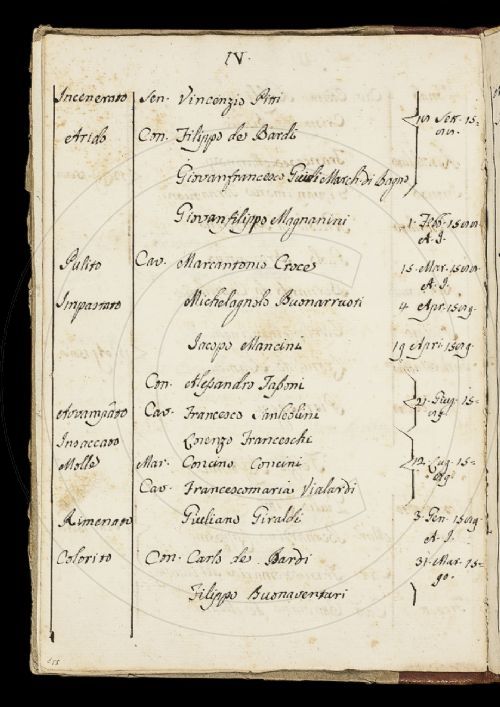 IV.
Incenerato Sen. Vincenzio Pitti
Arido Con. Filippo de Bardi
Giovanfrancesco Guidi March. di Bagno
Giovanfilippo Magnanini 1. Febb.
A. I.
Pulito Cav. Marcantonio Croces 15. Mar.
A. I.
Impastato Michelagnolo Buonarruoti 4 Apr.
Iacopo Mancini 19 Apri.
Con. Alessandro Tassoni
Avvampato Cav. Francesco Sanleolini
Insaccato Lorenzo Franceschi
Molle Mar. Concino Concini 12. Lug. 15=
Cav. Francescomaria Vialardi
Rimenato Giuliano Giraldi 3. Gen.
A. I.
Colorito Con. Carlo de Bardi 31. Mar. 15=
90.
Filippo Buonaventuri